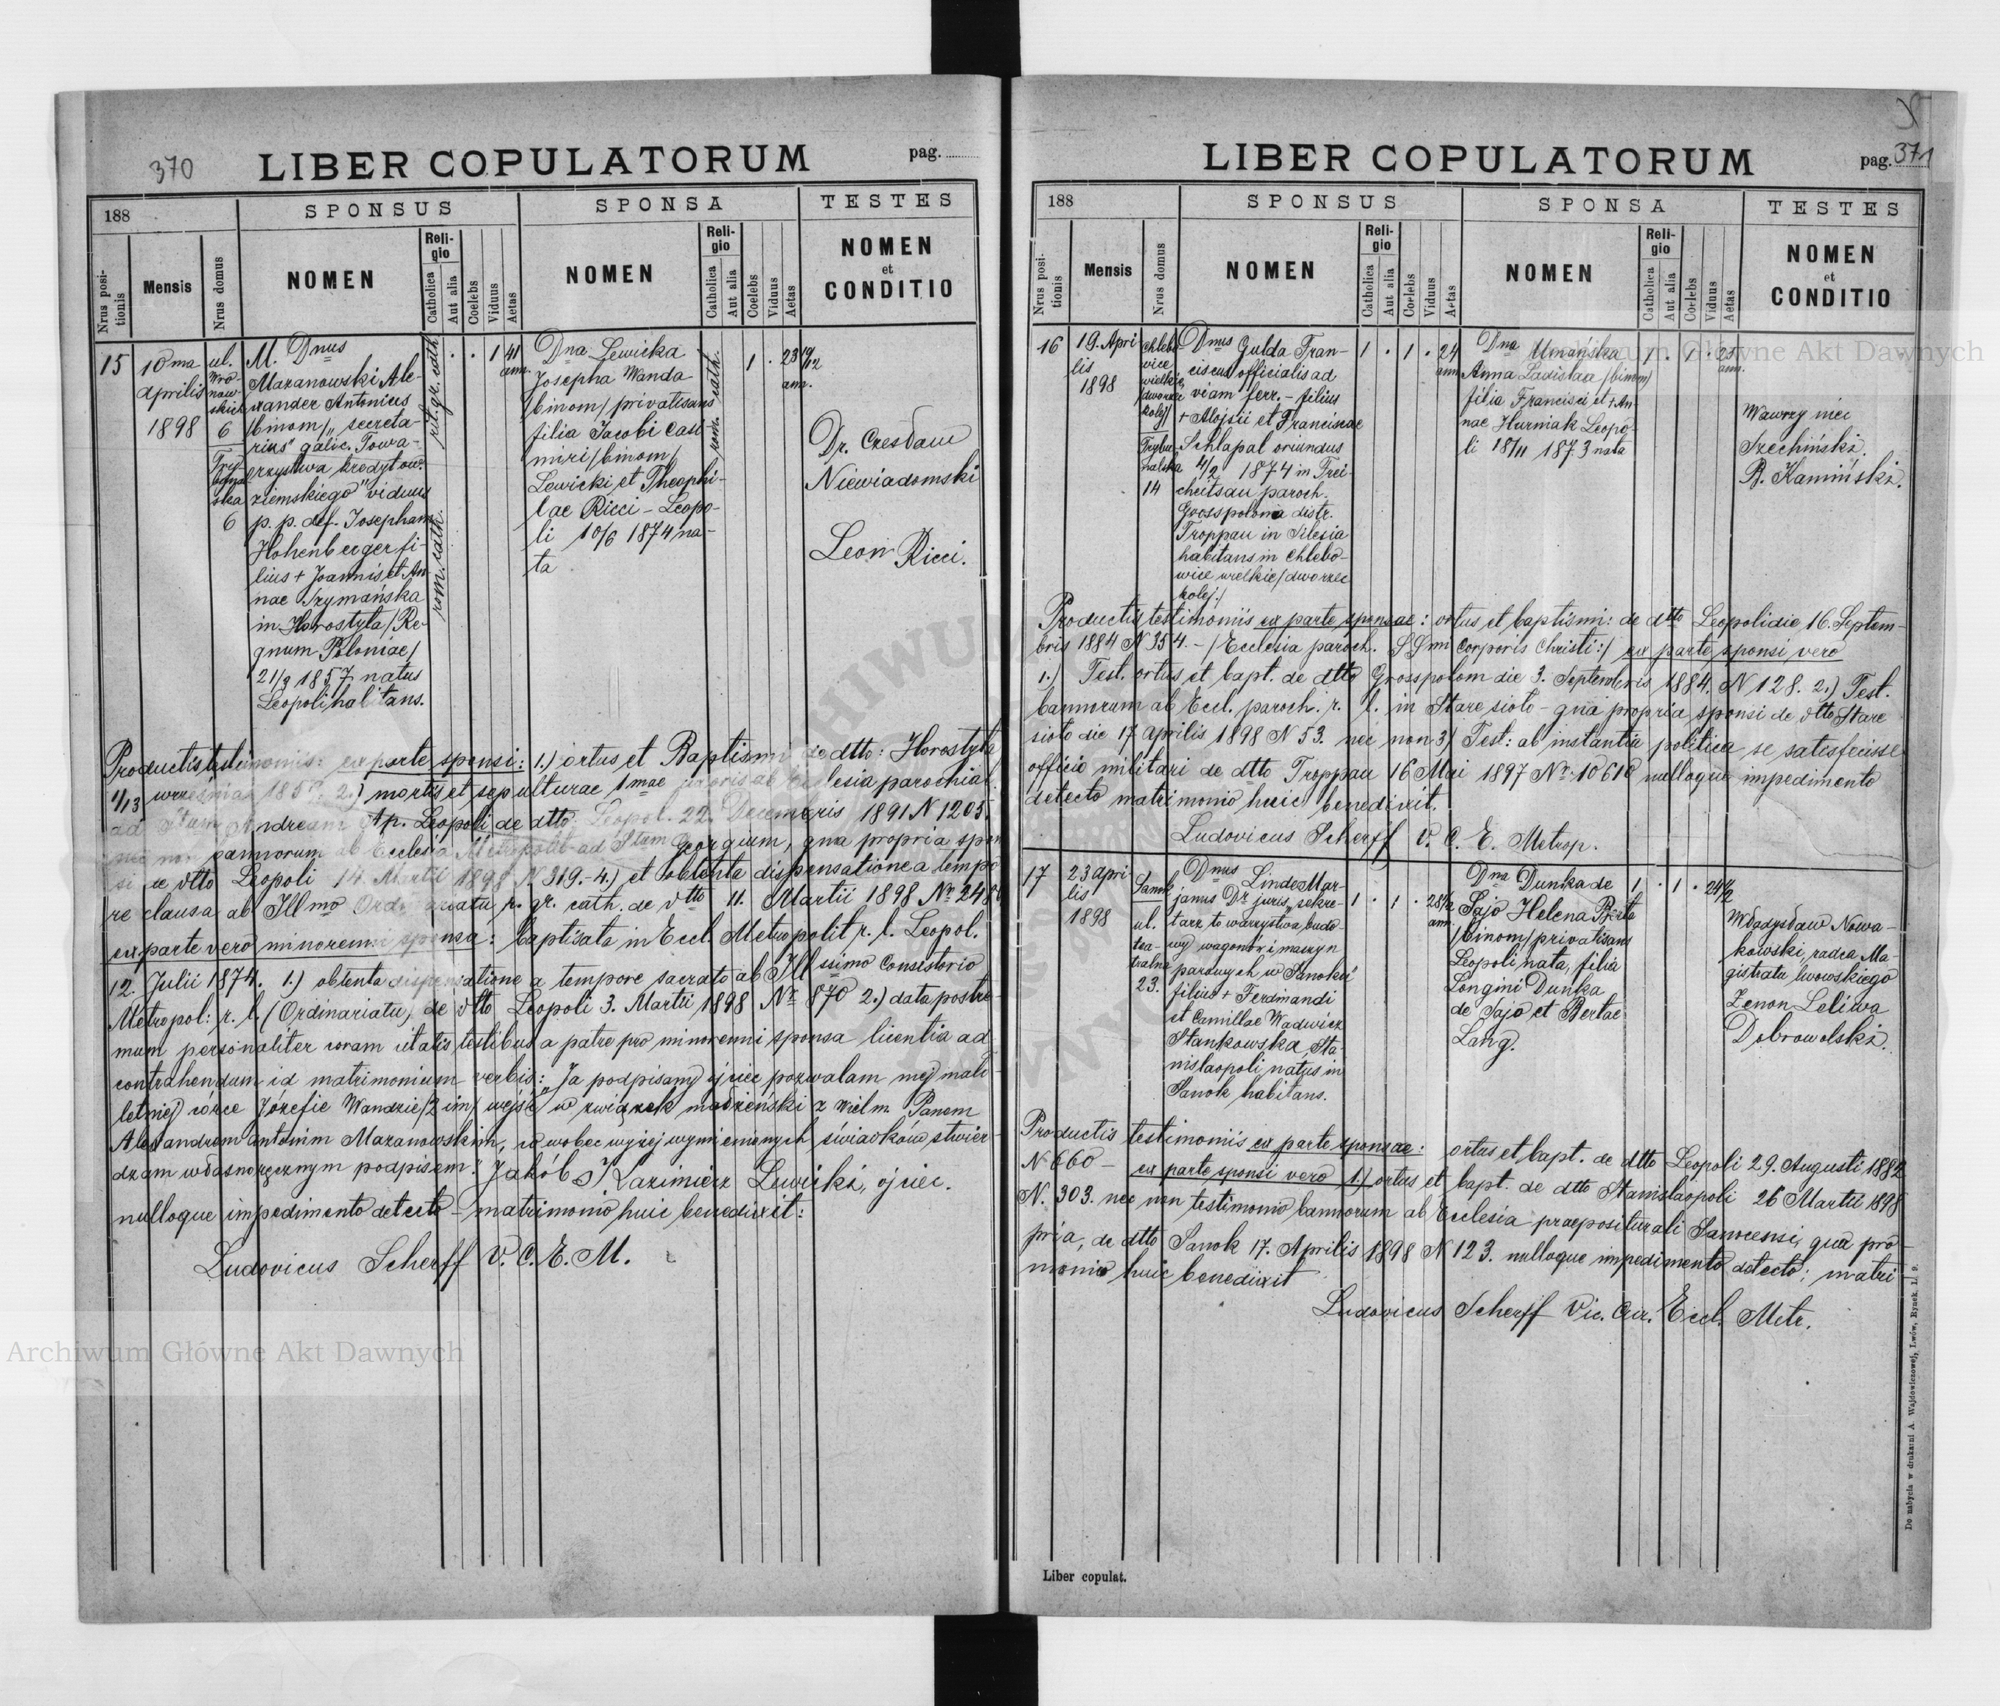 370
LIBER COPULATORUM
pag.
188
SPONSUS
SPONSA
TESTES
Nrus posi-
tionis
Mensis
Nrus domus
NOMEN
Reli-
gio
Catholica
Aut alia
Coelebs
Viduus
Aetas
NOMEN
Reli-
gio
Catholica
Aut alia
Coelebs
Viduus
Aetas
NOMEN
et
CONDITIO
15
10 ma
Aprilis
1898
ul.
6
6
M. Dnus
Mazanowski Ale-
xander Antonius
/binom/ „secreta-
rius" galic. Towa-
rzystwa kredytow.
ziemskiego" viduus
p. p. def. Josepham
Hohenberger fi-
lius + Joannis et An-
nae Szymańska
in Horostyta /Re-
gnum Poloniae/
21/9 1857 natus
Leopoli habitans.
rit. gr. cath.
rom. cath.
1 41
ann.
Dna Lewicka
Josepha Wanda
/binom/ privatisans
filia Jacobi Casi
miri /binom/
Lewicki et Theophi-
lae Ricci - Leopo-
li 10/6 1874 na-
ta
rom. cath.
1 23 19/12
ann.
Dr. Czesław
Niewiadomski
Leon Ricci.
Productis testimoniis: ex parte sponsi: 1.) ortus et Baptismi de dtto: Horostyta
1/13 września 185 2.) mortis et sepulturae 1mae ab Ecclesia parochiali
ad Stum Andream Ap. Leopoli de dtto Leopol. 22. Decembris 1891 N 1205.
bannorum ab Ecclesia Metropolit ad Stum Georgium, qua propria spon
si de dtto Leopoli 14 Martii 1898 N 319.-4.) et obtenta dispensatione a tempo-
re clauso ab Illmo Ordinariatu r. gr. cath. de dtto 11. Martii 1898 Nr
ex parte vero minorenni sponsa: baptisata in Eccl. Metropolit r. l. Leopol.
12. Julii 1874. 1.) obtenta dispensatione a tempore sacrato ab Illssimo Consistorio
Metropol: r. l. (Ordinariatu) de dtto Leopoli 3. Martii 1898 Nr 870 2.) data postre-
mum personaliter coram citatis testibus a patre pro minorenni sponsa licentia ad
contrahendum id matrimonium verbis: „Ja podpisany ojciec pozwalam mej mało-
letniej córce Józefie Wandzie /2 im/ wejść w związek małżeński z Wielm. Panem
Alexandrem Antonim Mazanowskim, co wobec wyżej wymienionych świadków stwier-
dzam własnoręcznym podpisem." Jakób Kazimierz Lewicki, ojciec.
nulloque impedimento detecto - matrimonio huic benedixit:
Ludovicus Scherff V. C. E. M.
LIBER COPULATORUM
pag. 371
188
SPONSUS
SPONSA
TESTES
Nrus posi-
tionis
Mensis
Nrus domus
NOMEN
Reli-
gio
Catholica
Aut alia
Coelebs
Viduus
Aetas
NOMEN
Reli-
gio
Catholica
Aut alia
Coelebs
Viduus
Aetas
NOMEN
et
CONDITIO
16
19. Apri
lis
1898
Chlebo
wice
wielkie
/dworzec
kolej/
14
Dnus Gulda Fran-
ciscus officialis ad
viam ferr. - filius
+ Alojsii et Franciscae
Schlapal oriundus
4/2 1874 in Frei-
cheitsau paroch.
Grosspolom distr.
Troppau in Silesia
habitans in Chlebo-
wice wielkie /dworzec
kolej./
1 . 1 . 24
ann.
Dna Umańska
Anna Ladislaa /binom/
filia Francisci et + An-
nae Hurniak Leopo-
li 18/11 1873 nata
1 . 1 . 25
ann.
Wawrzyniec
Szechiński.
R. Kamiński.
Productis testimoniis ex parte sponsae: ortus et baptismi: de dtto Leopoli die 16. Septem-
bris 1884 N 354. - /Ecclesia paroch. SSmi Corporis Christi:/ ex parte sponsi vero
1.) Test. ortus et bapt. de dtto Grosspolom die 3. Septembris 1884. N 128. 2.) Test.
bannorum ab Eccl. paroch. r. l. in Stare sioło - qua propria sponsi de dtto Stare
sioło die 17 Aprilis 1898 N 53. nec non 3) Test: ab instantia politica se satisfecisse
officio militari de dtto Troppau 16 Mai 1897 Nr: 10616 nulloque impedimento
detecto matrimonio huic benedixit.
Ludovicus Scherff V. C. E. Metrop.
17
23 Apri
lis
1898
Sanok
ul.
tea-
tralna
23.
Dnus Linde Mar-
janus Dr juris, sekre-
tarz towarzystwa budo-
wy wagonów i maszyn
parowych w Sanoku
filius + Ferdinandi
et Camillae Wadwicz
Stankowska, Sta-
nislaopoli natus in
Sanok habitans.
1 . 1 . 28 1/2
ann.
Dna Dunka de
Sajo Helena Berta
/binom/ privatisans
Leopoli nata, filia
Longini Dunka
de Sajo et Bertae
Lang.
1 . 1 .
Władysław Nowa-
kowski, radca Ma-
gistratu lwowskiego
Zenon Leliwa
Dobrowolski.
Productis testimoniis ex parte sponsae: ortus et bapt. de dtto Leopoli 29. Augusti 1882
N 660 - ex parte sponsi vero 1.) ortus et bapt. de dtto Stanislaopoli 26 Martii 1898
N. 303. nec non testimonio bannorum ab Ecclesia praepositurali Sanocensi, qua pro-
pria, de dtto Sanok 17. Aprilis 1898 N 123. nulloque impedimento detecto; matri-
monio huic benedixit
Ludovicus Scherff Vic. Cur. Eccl. Metr.
Liber copulat.
Do nabycia w drukarni A. Wajdowiczowej, Lwów, Rynek, l. 9.
Archiwum Główne Akt Dawnych
Archiwum Główne Akt Dawnych